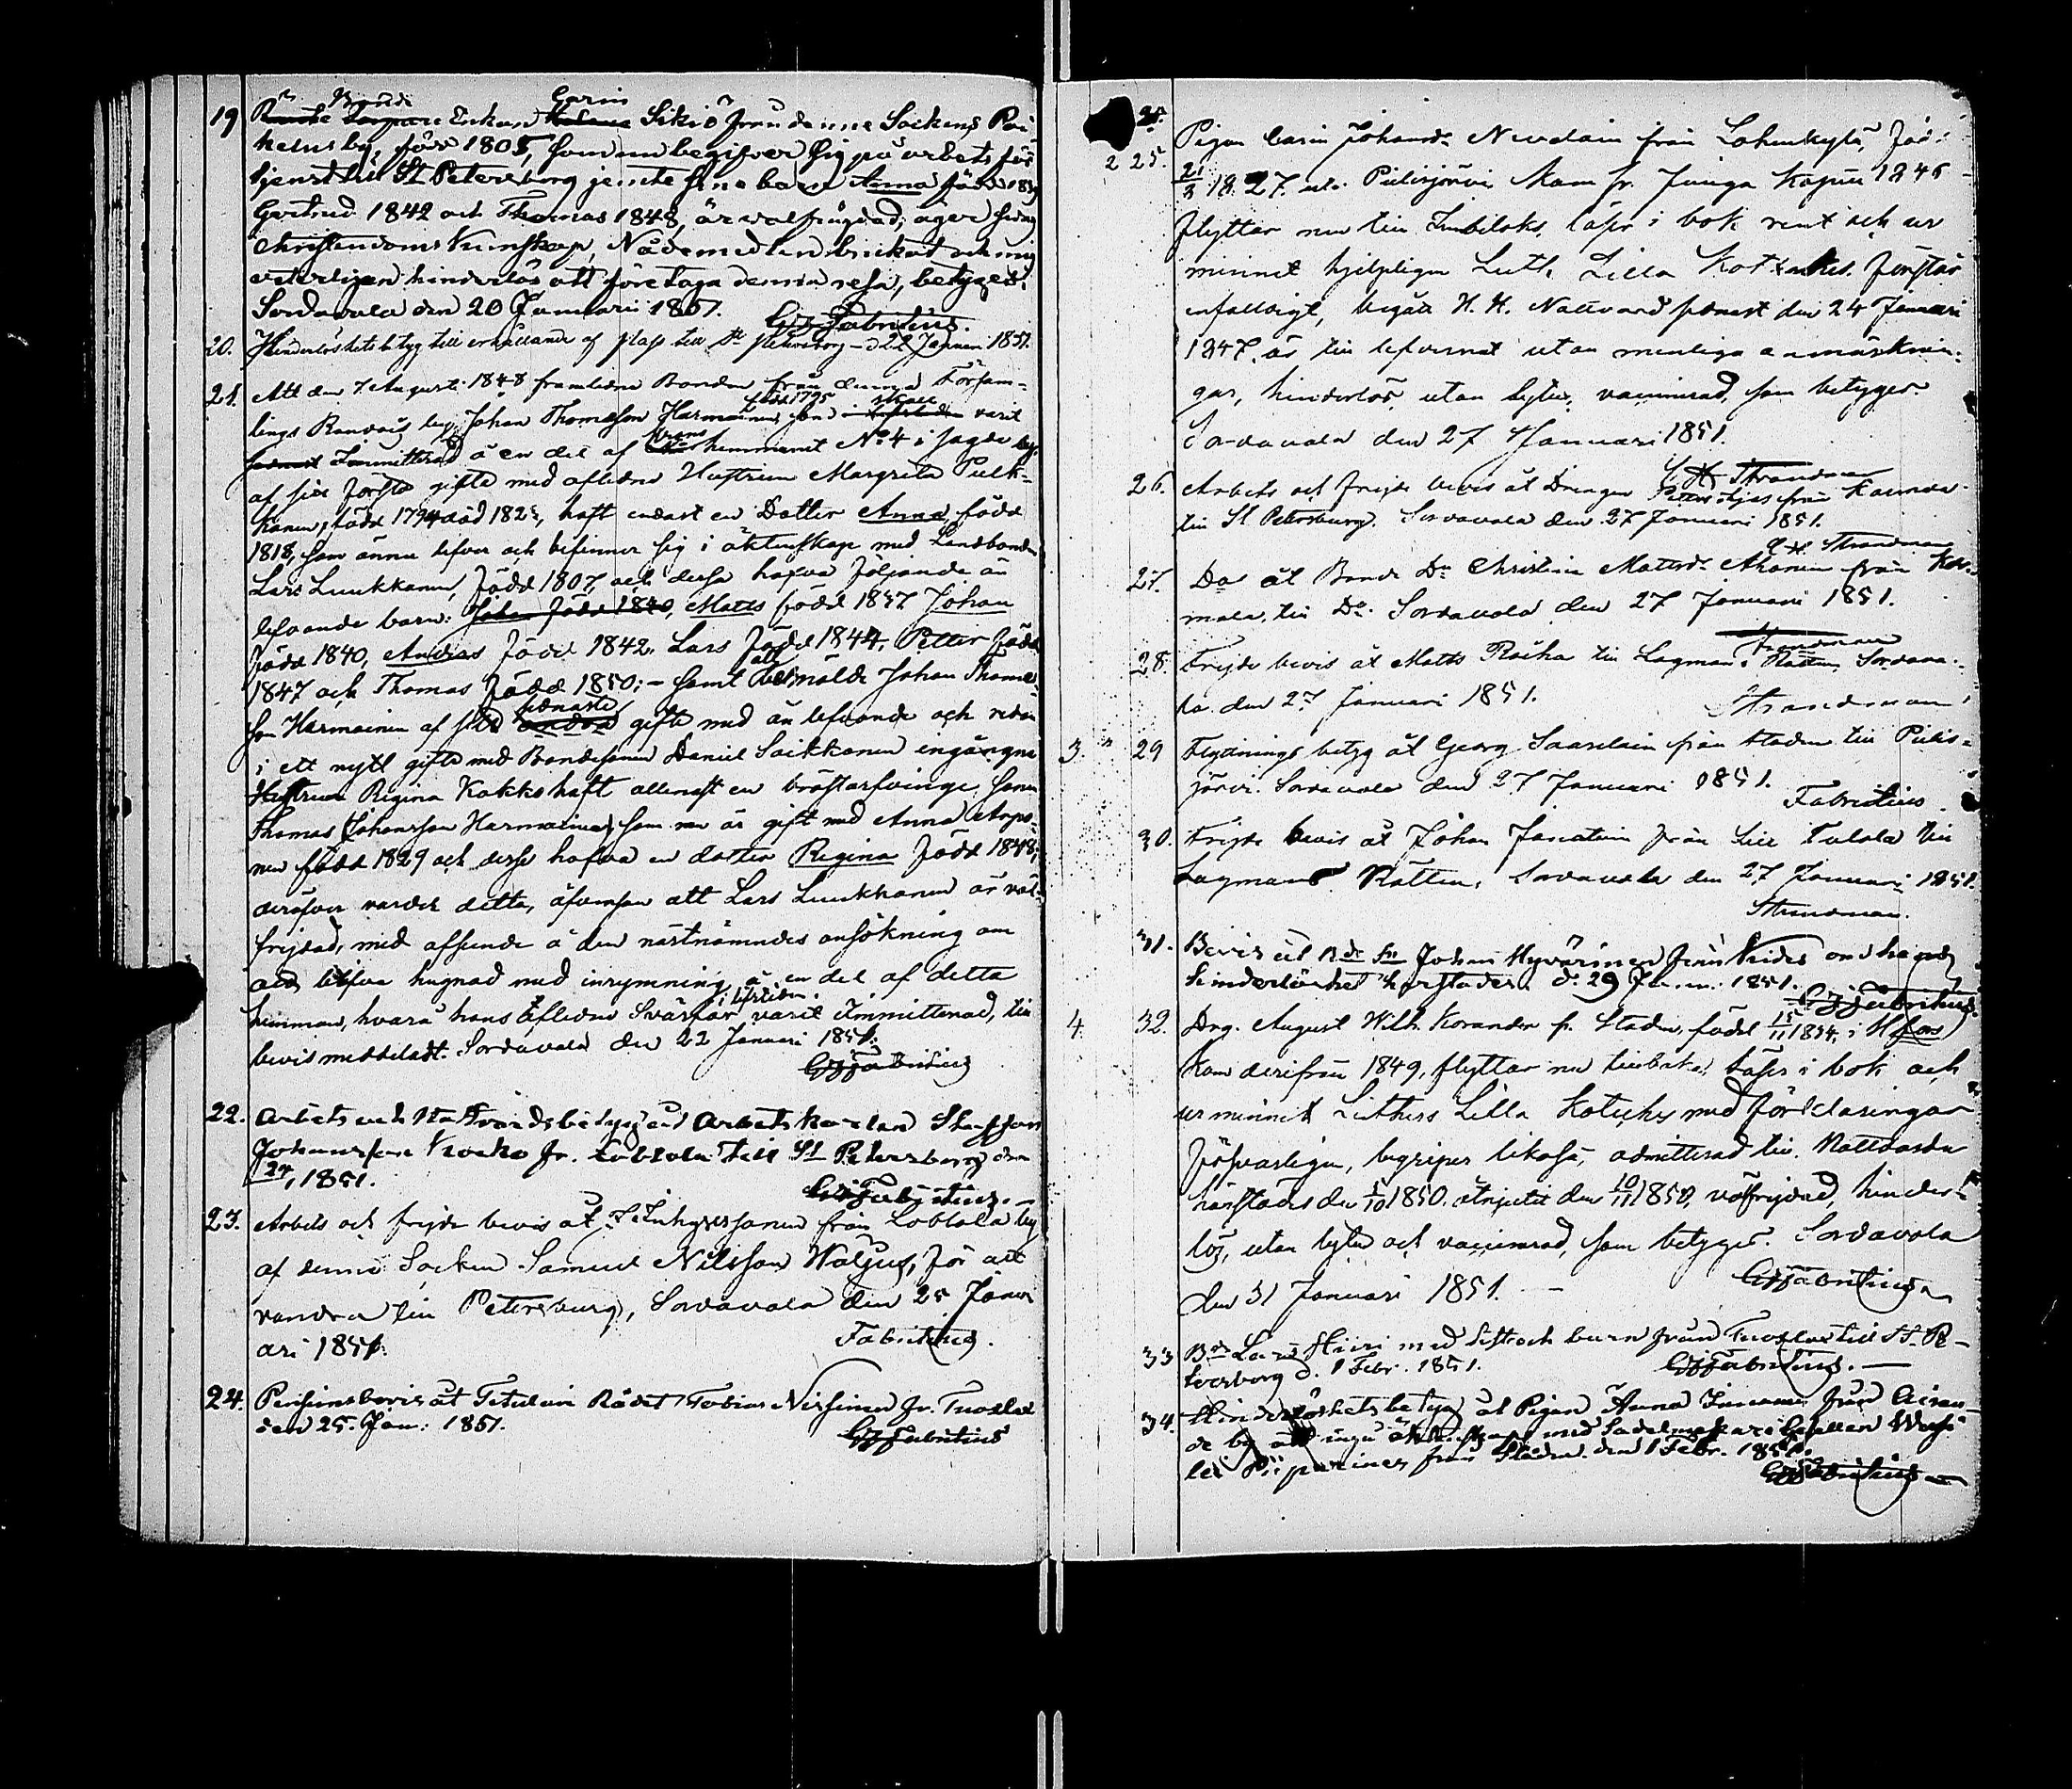 19 Bonde Enkan Carin Sikiö från denne Sockens Rei-
kelus by, född 1805, som nu begifver sig på arbets för
tjenst till St Petersburg jemte sina barn Anna född 1839
Gertrud 1842 och Thomas 1848, är valfrägdad; äger
Christendoms Kunskap, Nådemedlen brukat och mig
veterligen hinderlös att företaga denna resa, betygas.
Sordavala den 20 Januari 1851.
GJFabritius.
20. Hinderlöshetsbetyg till erhållande af pass till St Petersburg – d 22 Januari 1851.
21. Att den 7 Augusti 1848 framlidne Bonden från denna Försam-
lings Randais by, Johan Thomasson Harmainen, född 1795 skall varit
Immitterad å en del af Krono hemmanet No 4 i sagde by,
af sitt första gifte med aflidne Hustrun Margreta Pulk-
kanen, född 1794 död 1825, haft endast en Dotter Anna, född
1818, som ännu lefver och befinner sig i äktenskap med Landbonden
Lars Luukkanen, född 1807, och dessa hafva följande än
lefvande barn: Johan född 1840, Matts född 1837 Johan
född 1840, Andras född 1842. Lars född 1844, Petter född
1847 och Thomas född 1850; – samt att bemälde Johan Thoma-
son Harmainen af sitt sednaste gifte med än lefvande och redan
i ett nytt gifte med Bondesonen Daniel Saikkanen ingångne
Hustrun Regina Kokko haft allenast en bröstarfvinge, sonen
Thomas Johansson Harmainen, som nu är gift med Anna Arpo-
nen född 1829 och desse hafva en dotter Regina född 1848;
deröfver varder detta, äfvensom att Lars Luukkanen är väl-
frejdad, med afseende å den nästnämndes ansökning om
att blifva hugnad med inrymning å en del af detta
hemman, hvarå hans aflidne Svärfar i lifstiden varit Immitterad, till
bevis meddeladt. Sordavala den 22 Januari 1851.
GJFabritius
22. Arbets och Nattvardsbetyg åt Arbetskarlen Staffan
Johansson Kocko fr. Lobkola till St Petersburg den
24, 1851.
GJFabritius.
23. Arbets och frejde bevis åt Inhyses sonen från Lobkola by
af denna Socken Samuel Nilsson Waljus, för att
vandra till Petersburg, Sordavala den 25 Janu
ari 1851.
Fabritius.
24. Pensionsbevis åt Titulair Rådet Tobias Nissinen fr. Tuoslax
den 25. Jan: 1851.
GJFabritius
2 25. Pigan Carin Johansd. Nevalain från Lahenkylä, född
21/3 1827. uti Pielisjärvi Kom fr. Junga Kapell 1846
flyttar nu till Imbilaks, läser i bok rent och ur
minnet hjelpligen Luth. Lilla Kateches. förstår
enfaldigt, begått H. H. Nattvard sednast den 24 Januari
1847, är till lefvernet utan menliga anmärknin-
gar, hinderlös, utan lyte, vaccinerad, som betygas.
Sordavala den 27 Januari 1851.
Strandman
26. Arbets och frejde bevis åt Drengen Petter från
till St Petersburg. Sordavala den 27 Januari 1851.
Strandman
27. Do åt Bonde Dn Christina Mattsd. Ahonen från
mala, till Do. Sordavala den 27 Januari 1851.
Strandman
28. Frejde bevis åt Matts Raiha till Lagmans Rätten, Sordava-
la den 27 Januari 1851.
Strandman
3. 29 Flyttnings betyg åt Georg Saarelain från Staden till Pielis-
järvi. Sordavala den 27 Januari 1851.
Fabritius.
30. Frejde bevis åt Johan från Lill Tulola till
Lagmans Rätten, Sordavala den 27 Januari 1851.
Strandman.
31. Bevis åt Bde Sn Johan Hyvärinen från Kides om hans
hinderlöshet härstädes. d. 29 Jan. 1851.
GJFabritius.
4. 32. Drg. August Wilh. Korander fr. Staden, född 15/11 1834, i Hfors
kom derifrån 1849, flyttar nu tillbaka, läser i bok och
ur minnet Luthers Lilla Kateches med förklaringar
försvarligen, begriper likaså, admitterad till Nattvarden
härstädes den 5/10 1850. åtnjutit den 10/11 1850, välfrejdad, hinder-
lös, utan lyte och vaccinerad, som betygas. Sordavala
den 31 Januari 1851. –
GJFabritius
33 Bdn Lars Hiiri med hustru och barn från Tuoslax till St. Pe-
tersborg d. 1 Febr. 1851.
GJFabritius. –
34. Hinderlöshetsbetyg åt Pigan Anna från
de by att ingå äktenskap med Sadelmakare Gesellen Wasi
lei Piiparinen från Staden. den 1 Febr. 1851.
GJFabritius –